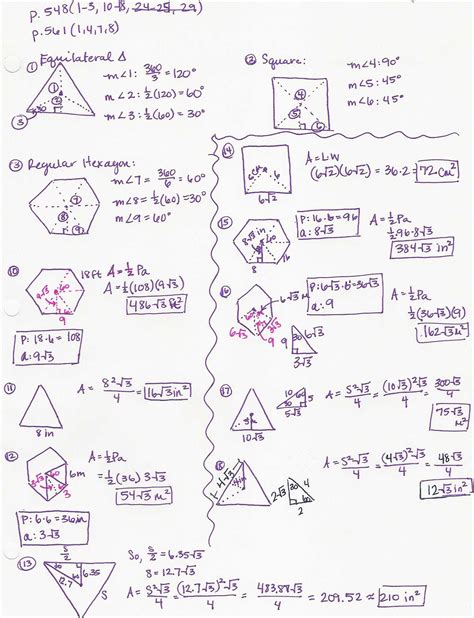 p. 548 (1-3, 10-18, 24-25, 29)
p. 561 (1,4,7,8)
① Equilateral Δ
m∠1: 360/3 = 120°
m∠2: ½(120) = 60°
m∠3: ½(60) = 30°
② Square:
m∠4: 90°
m∠5: 45°
m∠6: 45°
③ Regular Hexagon:
m∠7 = 360/6 = 60°
m∠8 = ½(60) = 30°
m∠9 = 60°
⑭
A = LW
(6√2)(6√2) = 36·2 = 72 cm²
6√2
⑮
8√3 in
8
16
P: 16·6 = 96
a: 8√3
A = ½Pa
½·96·8√3
384√3 in²
⑩
18ft
9√3
9
A = ½Pa
A = ½(108)(9√3)
486√3 ft²
P: 18·6 = 108
a: 9√3
⑯
6√3 M
6√3
9
P: 6√3·6 = 36√3
a: 9
A = ½Pa
½(36√3)(9)
162√3 M²
⑪
8 in
A = 8²√3/4 = 16√3 in²
⑰
10√3
5√3
A = S²√3/4 = (10√3)²√3/4 = 300√3/4
75√3 M²
⑫
6m
3
A = ½Pa
= ½(36) 3√3
54√3 M²
P: 6·6 = 36in
a: 3√3
⑱
4√3
4in
2√3
2
A = S²√3/4 = (4√3)²√3/4 = 48√3/4
12√3 in²
⑬
S/2
12.7
6.35
S
So, S/2 = 6.35√3
S = 12.7√3
A = S²√3/4 = (12.7√3)²√3/4 = 483.87√3/4 = 209.52 ≈ 210 in²